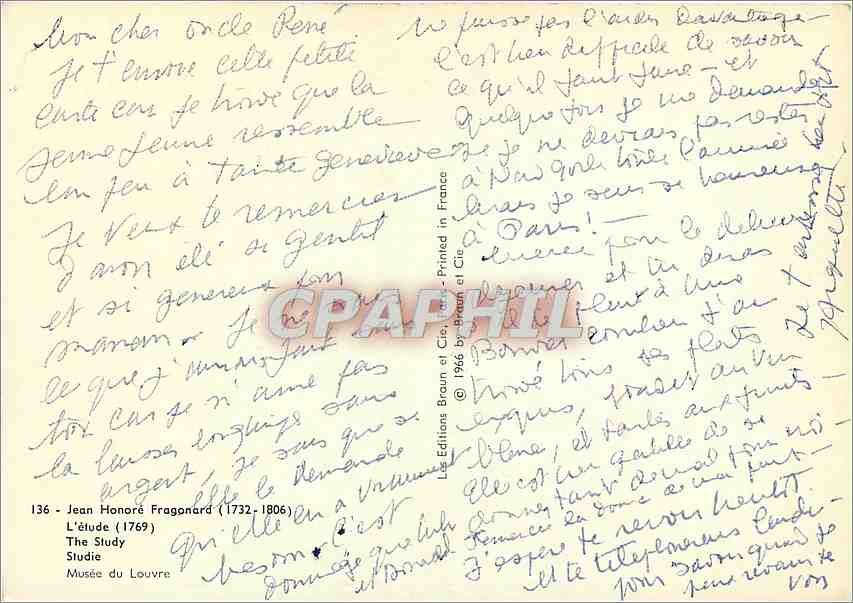 Mon cher oncle René
Je t'envoie cette petite
carte car je trouve que la
jeune femme ressemble
un peu à tante Geneviève
Je veux te remercier
d'avoir été si gentil
et si généreux pour
maman. Je ne sais
ce que j'aurais fait sans
toi car je n'aime pas
la laisser longtemps sans
argent, je sais que si
elle le demande
qu'elle en a vraiment
besoin. C'est
dommage que
ne puisse pas l'aider davantage
c'est bien difficile de savoir
ce qu'il faut faire - et
quelque fois je me demande
si je ne devrais pas rester
à toute l'année
mais je suis si heureuse
à Paris! -
Merci pour le délicieux
déjeuner et tu diras
s'il te plait à
combien j'ai
trouvé tous ses plats
exquis,
et tartes aux fruits -
Elle est bien gentille de se
donner tant de mal pour moi -
Remercie la donc de ma part -
J'espère te revoir bientôt
et te téléphonerai lundi
pour savoir quand je
peux revenir te
voir
Je t'embrasse bien fort
136 - Jean Honoré Fragonard (1732-1806)
L'étude (1769)
The Study
Studie
Musée du Louvre
Les Editions Braun et Cie, Paris - Printed in France
© 1966 by Braun et Cie
CPAPHIL